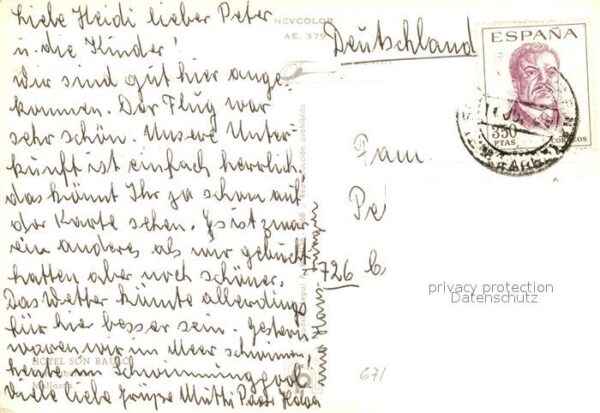 Liebe Heidi lieber Peter
u. die Kinder!
Wir sind gut hier ange-
kommen. Der Flug war
sehr schön. Unsere Unter-
kunft ist einfach herrlich.
das könnt Ihr ja schon auf
der Karte sehen. Es ist zwar
ein anderes als wir gebucht
hatten aber noch schöner.
Das Wetter könnte allerdings
für hier besser sein. Gestern
waren wir im Meer schwimmen
heute im Schwimmingpool!
Viele liebe Grüße Mutti Pappi
HOTEL SON BAULO
Mallorca.
NEVCOLOR
AE. 375
Deutschland
ESPAÑA
350
PTAS
CORREOS
Fam.
Pe
726 C
privacy protection
Datenschutz
671